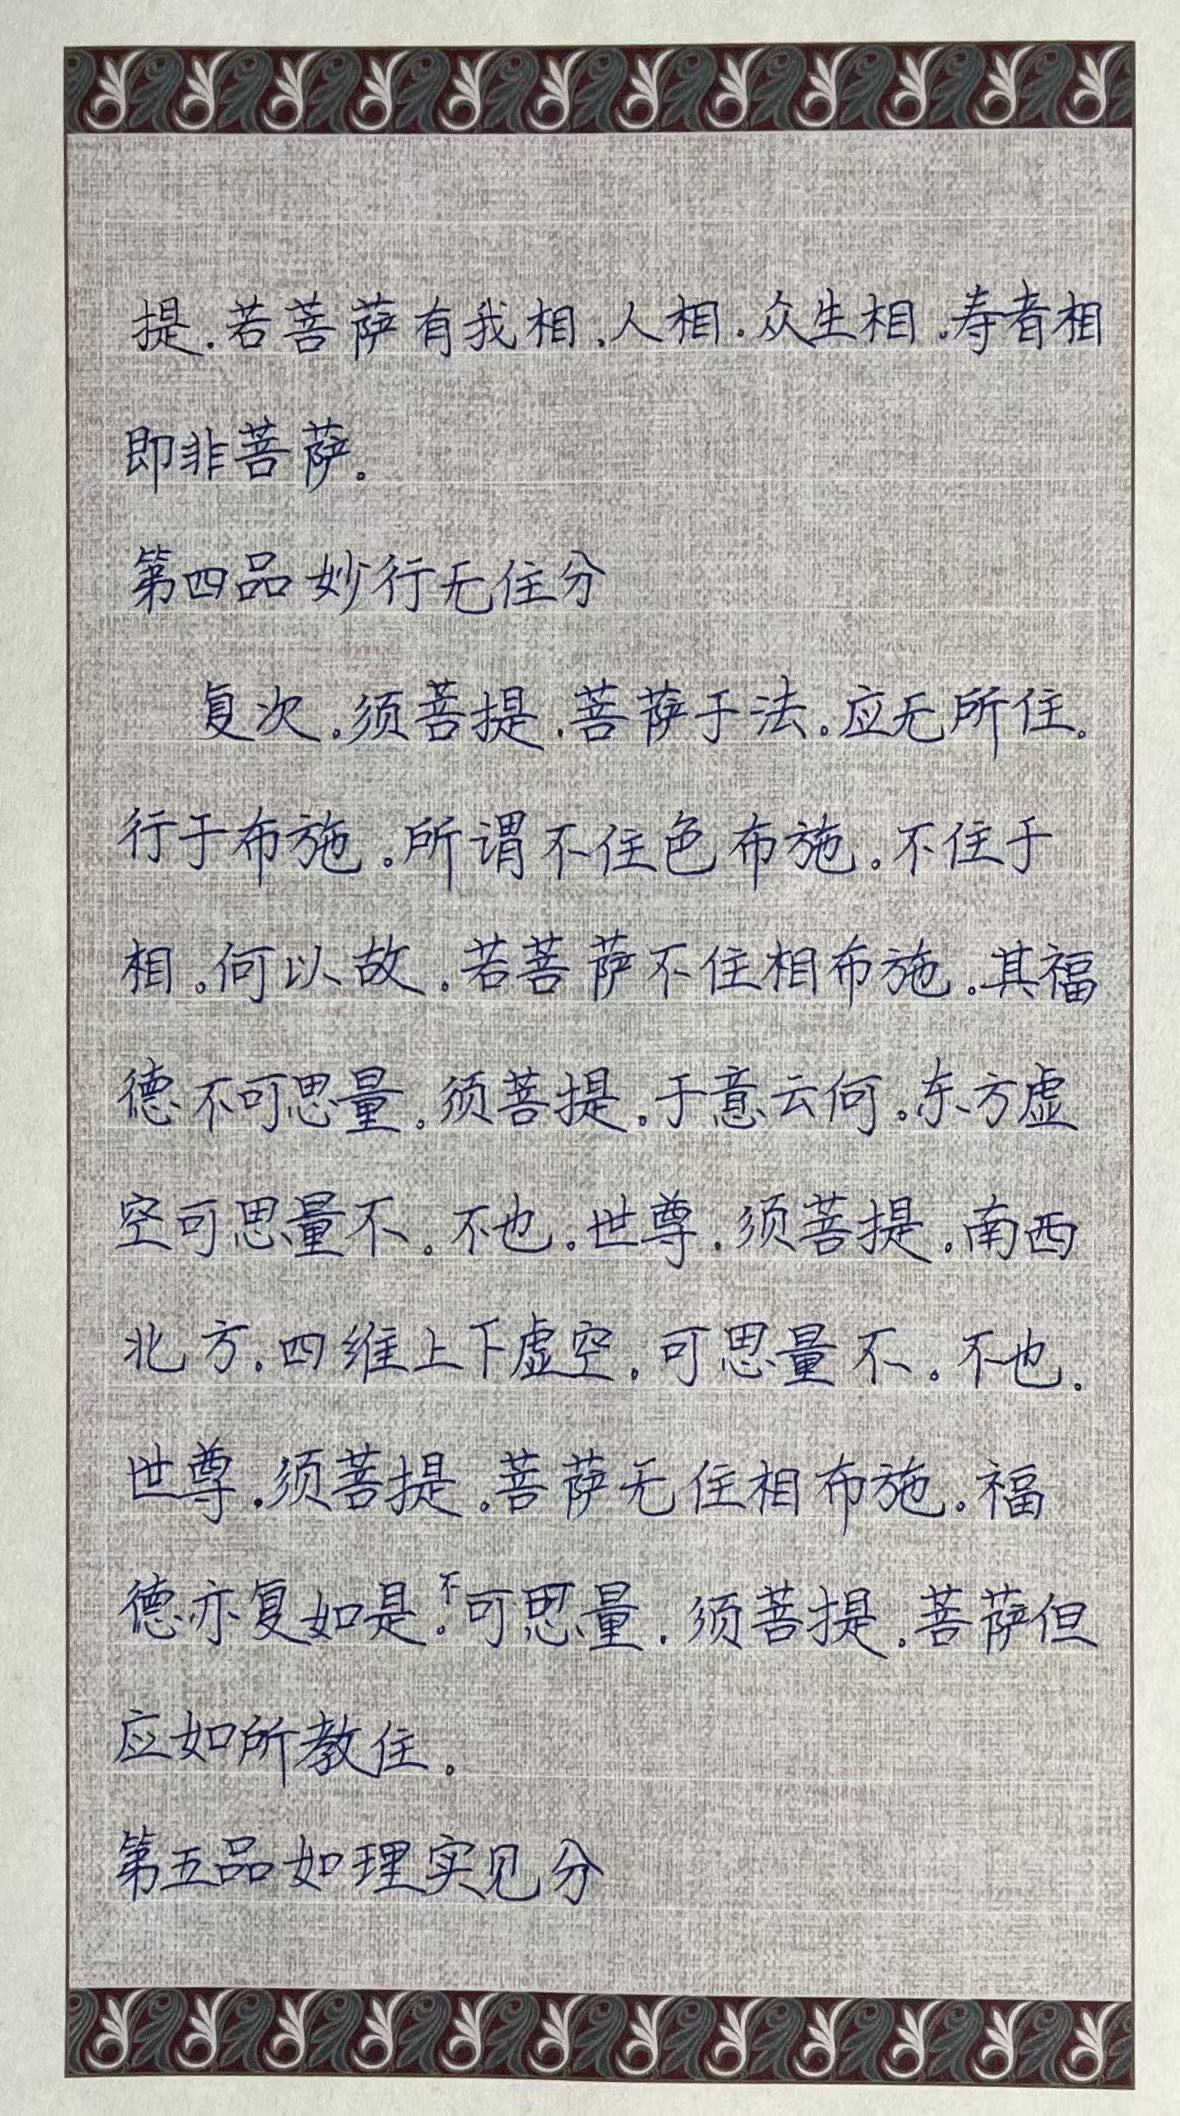 提.若菩萨有我相.人相.众生相.寿者相
即非菩萨。
第四品妙行无住分
复次.须菩提.菩萨于法.应无所住.
行于布施。所谓不住色布施。不住于
相。何以故.若菩萨不住相布施。其福
德不可思量。须菩提。于意云何。东方虚
空可思量不。不也。世尊.须菩提。南西
北方.四维上下虚空。可思量不。不也.
世尊.须菩提。菩萨无住相布施。福
德亦复如是。不可思量.须菩提.菩萨但
应如所教住。
第五品如理实见分